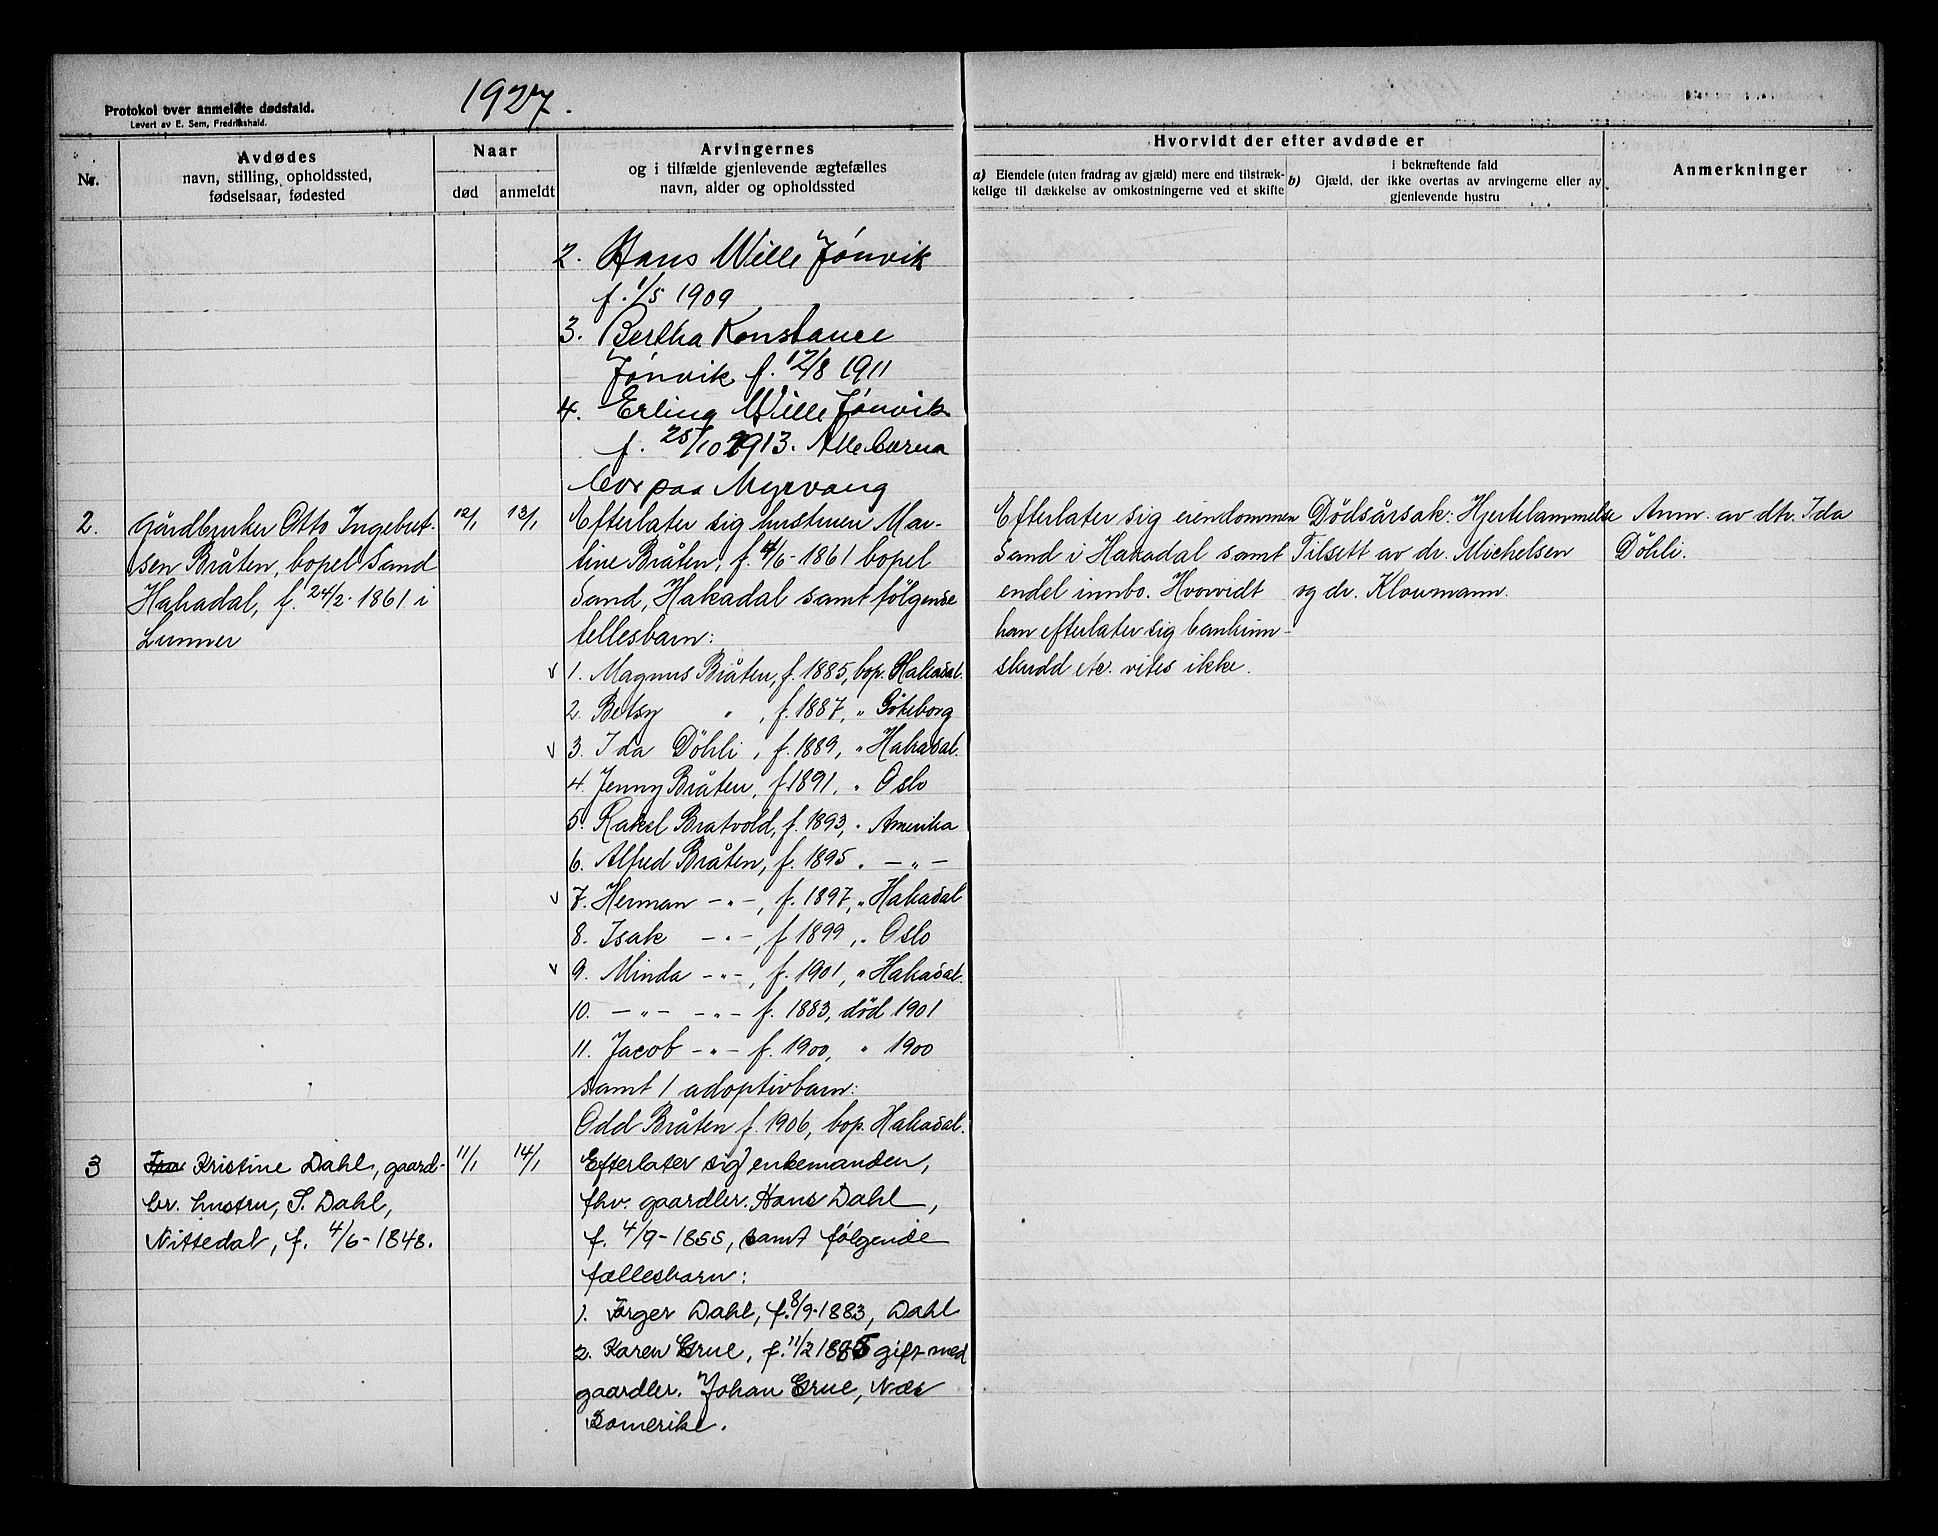 Protokol over anmeldte dødsfald.
Levert av E. Sem, Fredrikshald.
1927.
Nr.
Avdødes
navn, stilling, opholdssted,
fødselsaar, fødested
Naar
død
anmeldt
Arvingernes
og i tilfælde gjenlevende ægtefælles
navn, alder og opholdssted
Hvorvidt der efter avdøde er
a) Eiendele (uten fradrag av gjæld) mere end tilstræk-
kelige til dækkelse av omkostningerne ved et skifte
i bekræftende fald
b) Gjæld, der ikke overtas av arvingerne eller av
gjenlevende hustru
Anmerkninger
2. Hans Wille Jónvik
f. 1/5 1909
3. Bertha Konstance
Jónvik f. 12/8 1911
4. Erling Wille Jónvik
f. 25/10 1913. Alle barna
bor paa Myrvang
2.
Gårdbruker Otto Ingebret-
sen Bråten, bopel Sand
Hakadal, f. 24/2 1861 i
Lunner
12/1
13/1
Efterlater sig hustruen Mar-
tine Bråten, f. 4/6-1861 bopel
Sand, Hakadal samt følgende
fellesbarn:
v 1. Magnus Bråten, f. 1885, bop. Hakadal.
2. Betsy " , f. 1887, " Göteborg
v 3. Ida Döhli, f. 1889, " Hakadal.
4. Jenny Bråten, f. 1891, " Oslo
5. Rakel Bratvold, f. 1893, " Amerika
6. Alfred Bråten, f. 1895 " - " -
v 7. Herman - " -, f. 1897, " Hakadal
8. Isak - " -, f. 1899, " Oslo
v 9. Minda - " -, f. 1901, " Hakadal.
10. - " - - " - f. 1883, död 1901
11. Jacob - " - f. 1900, " 1900
samt 1 adoptivbarn:
Odd Bråten f. 1906, bop. Hakadal.
Efterlater sig eiendommen
Sand i Hakadal samt
endel innbo. Hvorvidt
han efterlater sig bankinn-
skudd etc. vites ikke.
Dödsårsak: Hjertelammelse
Tilsett av dr. Michelsen
og dr. Kloumann.
Anm. av dtr. Ida
Döhli.
3
Fru Kristine Dahl, gaard-
br. hustru, S. Dahl,
Nittedal, f. 4/6-1848.
11/1
14/1
Efterlater sig enkemanden,
fhv. gaardbr. Hans Dahl,
f. 4/9-1855, samt følgende
fællesbarn:
1. Jørger Dahl, f. 8/9-1883, Dahl
2. Karen Grue, f. 11/2 1885 gift med
gaardbr. Johan Grue, Næs
Romerike.